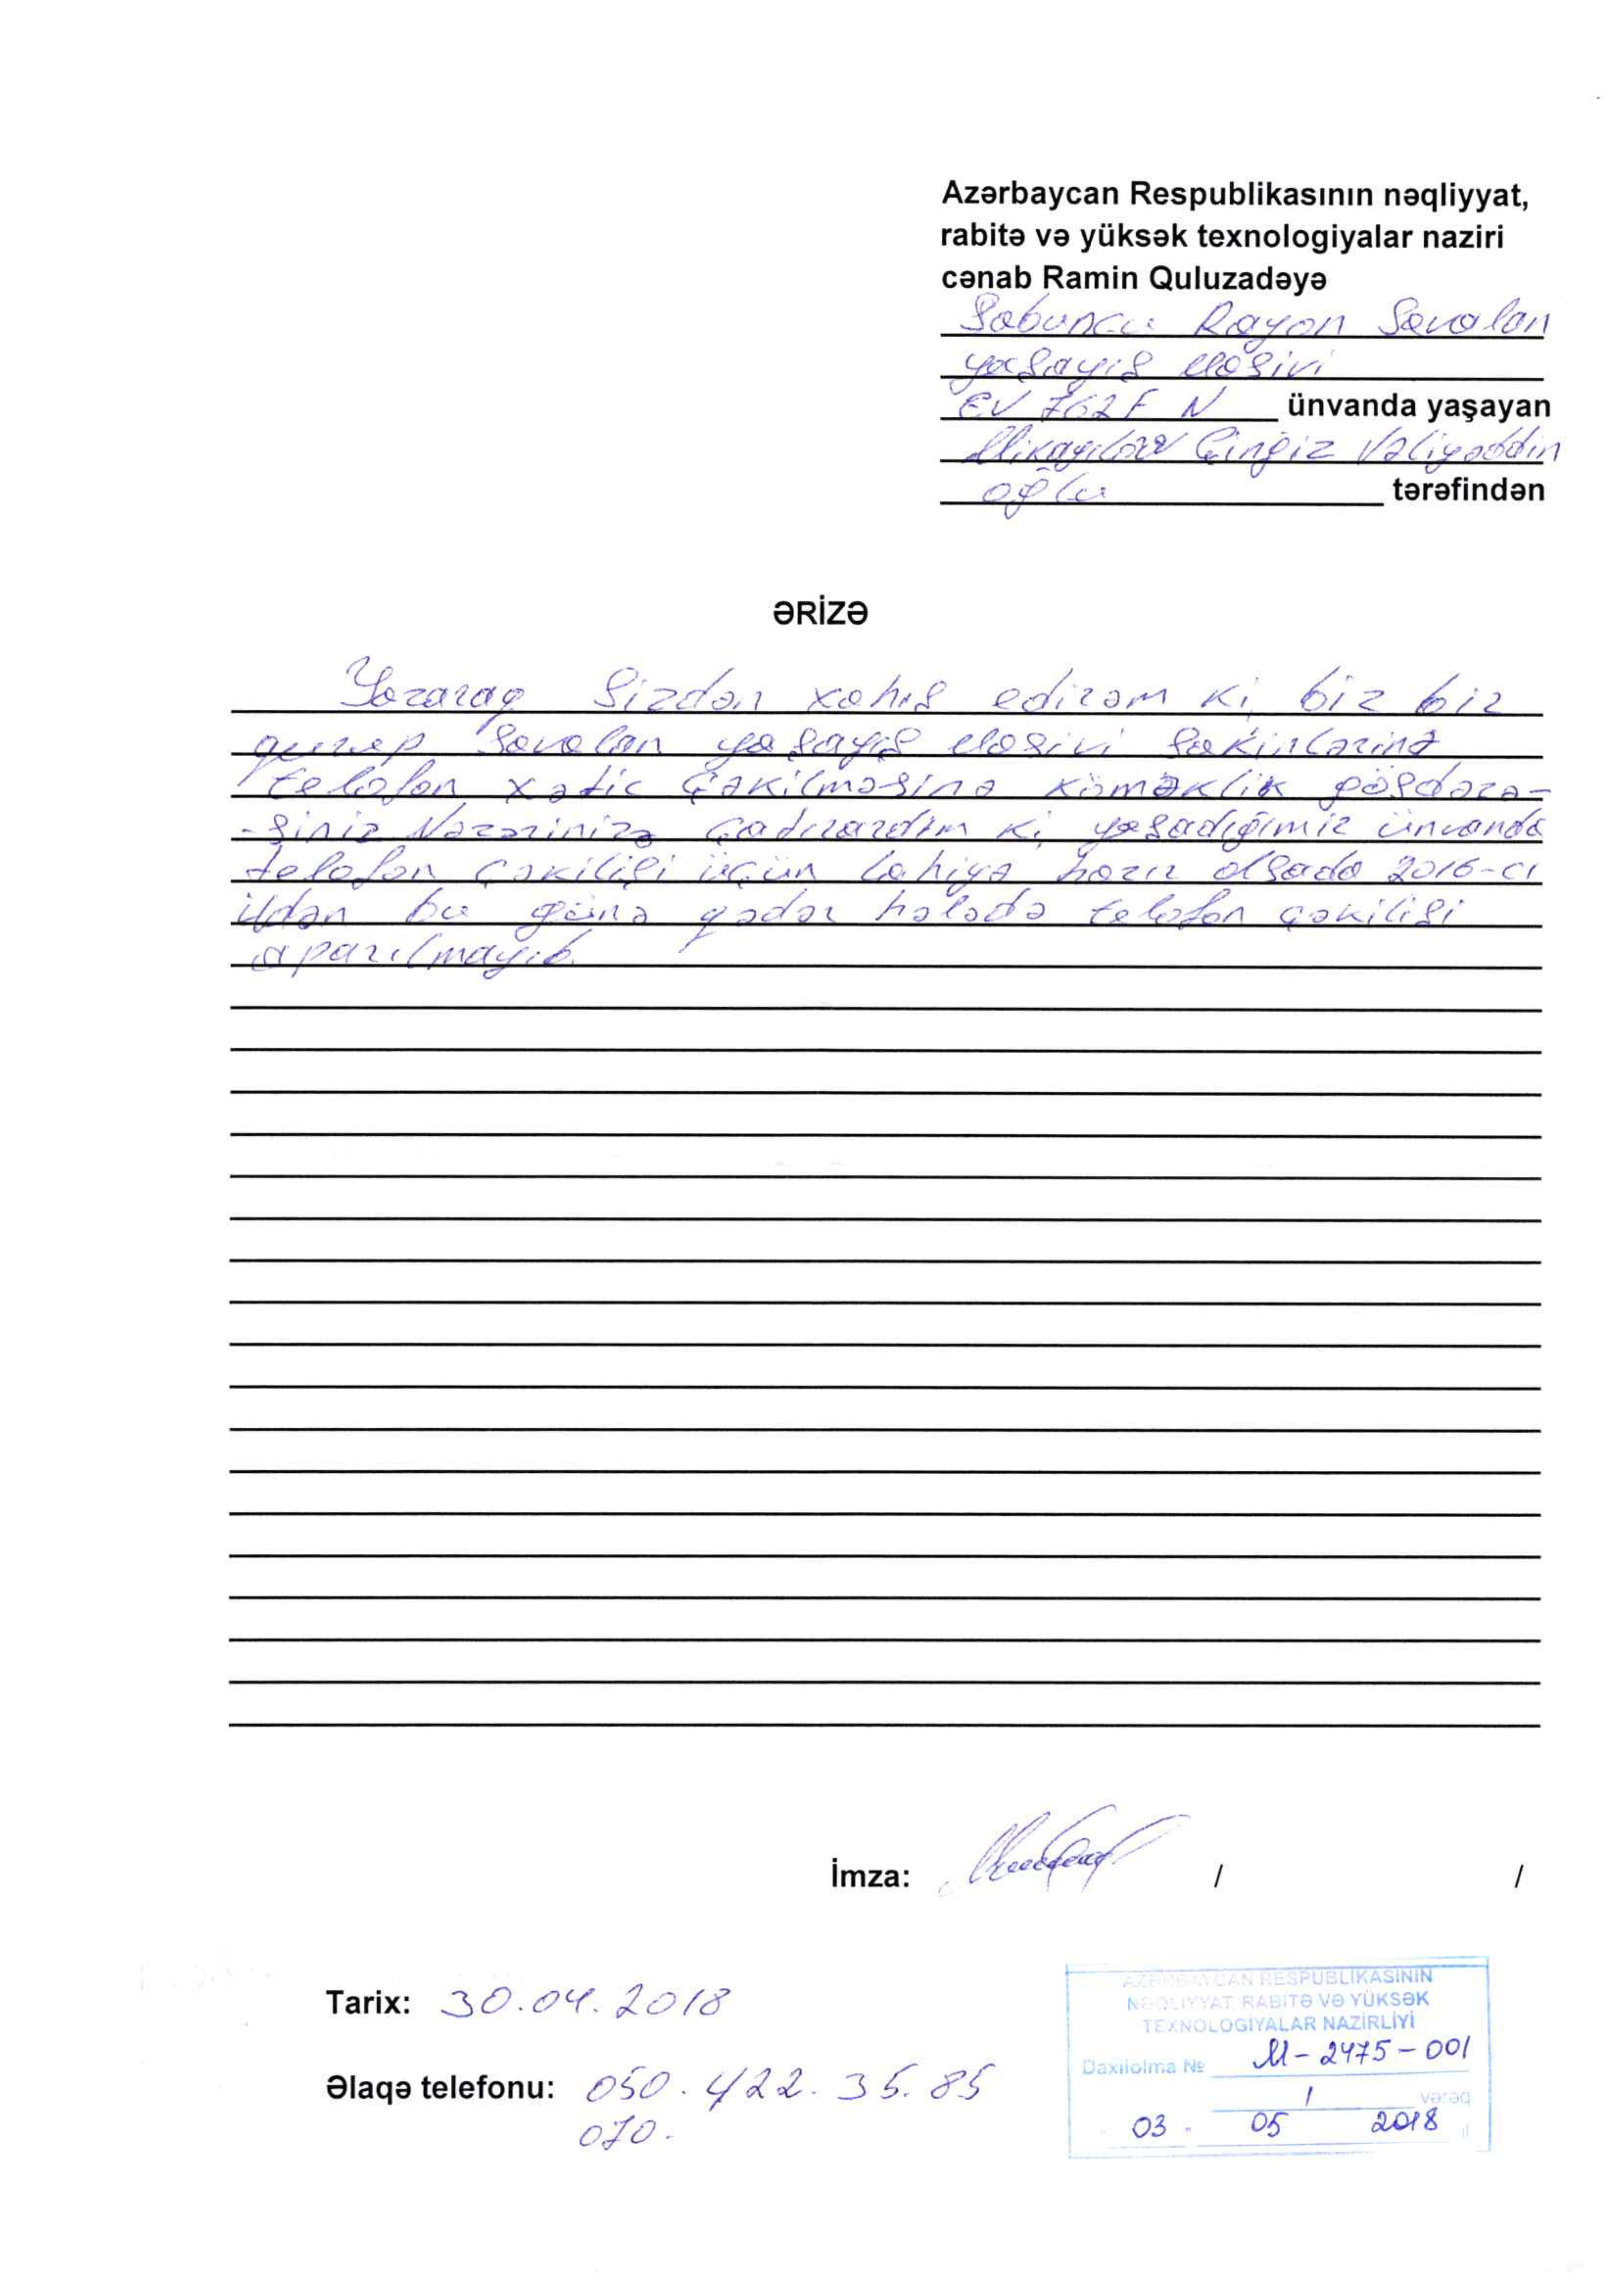 Azərbaycan Respublikasının nəqliyyat,
rabitə və yüksək texnologiyalar naziri
cənab Ramin Quluzadəyə
Sabunçu Rayon Savalan
yaşayış
EV 762F N ünvanda yaşayan
Mikayılov Çingiz Vəliyəddin
oğlu tərəfindən
ƏRİZƏ
Yazaraq Sizdən xahiş edirəm ki, biz bir
qurup Savalan yaşayış sakinlərinə
telefon xətic çəkilməsinə köməklik gösdərə-
-siniz Nəzərinizə çadırardım ki, yaşadığımız ünvanda
telefon çəkilişi üçün lahiyə hazır olsada 2016-cı
ildən bu günə qədər hələdə telefon çəkilişi
aparılmayıb.
İmza: / /
Tarix: 30.04.2018
Əlaqə telefonu: 050.422.35.85
070.
AZƏRBAYCAN RESPUBLİKASININ
NƏQLİYYAT, RABİTƏ VƏ YÜKSƏK
TEXNOLOGİYALAR NAZİRLİYİ
Daxilolma № M-2475-001
1 vərəq
03 - 05 2018 il